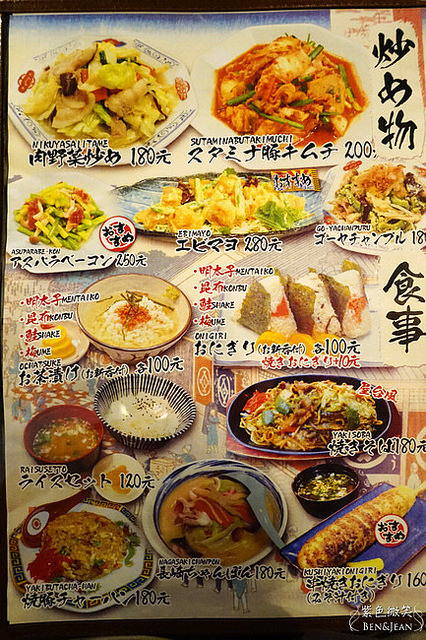 炒め物
NIKUYASAI ITAME
肉野菜炒め 180元
SUTAMINABUTAKIMUCHI
スタミナ豚キムチ 200
ASUPARABE-KON
アスパラベーコン 250元
おすすめ
おすすめ
EBIMAYO
エビマヨ 280元
GO-YACHANPURU
ゴーヤチャンプル 180
食事
・明太子 MENTAIKO
・昆布 KONBU
・鮭 SHAKE
・梅 UME
OCHATSUKE
お茶漬け(お新香付) 各100元
・明太子 MENTAIKO
・昆布 KONBU
・鮭 SHAKE
・梅 UME
ONIGIRI
おにぎり(お新香付) 各100元
焼きおにぎり +10元
RAISUSETTO
ライスセット 120元
屋台風
YAKISOBA
焼きそば 180元
YAKIBUTACHA-HAN
焼豚チャーハン 180元
NAGASAKICHANPON
長崎ちゃんぽん 180元
おすすめ
KUSHIYAKIONIGIRI
串焼きおにぎり 160
(みそ汁付き)
紫色微笑
BEN&JEAN